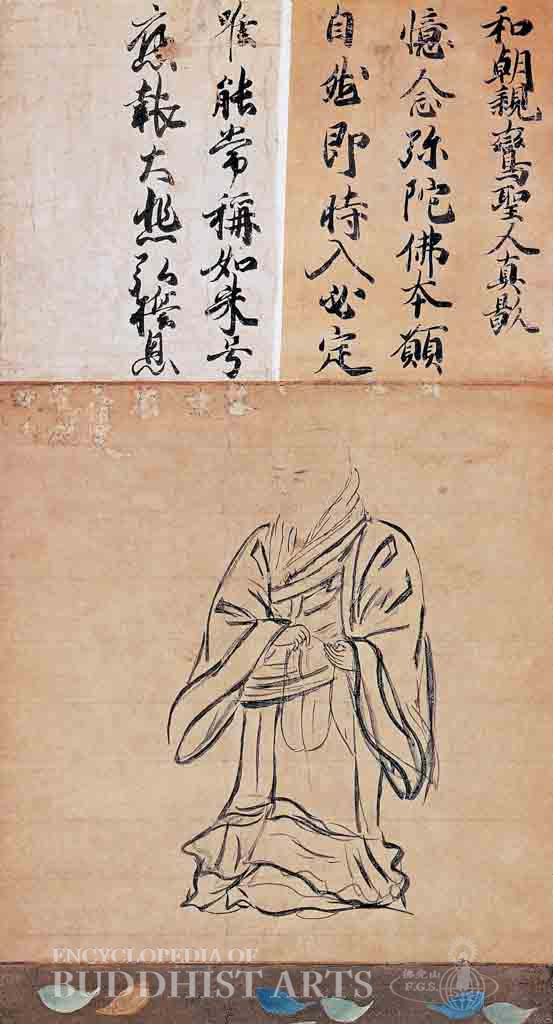 和朝親鸞聖人真影
憶念弥陀佛本願
自然即時入必定
唯能常稱如来号
應報大悲弘誓恩
ENCYCLOPEDIA OF
BUDDHIST ARTS
佛光山
F.G.S.